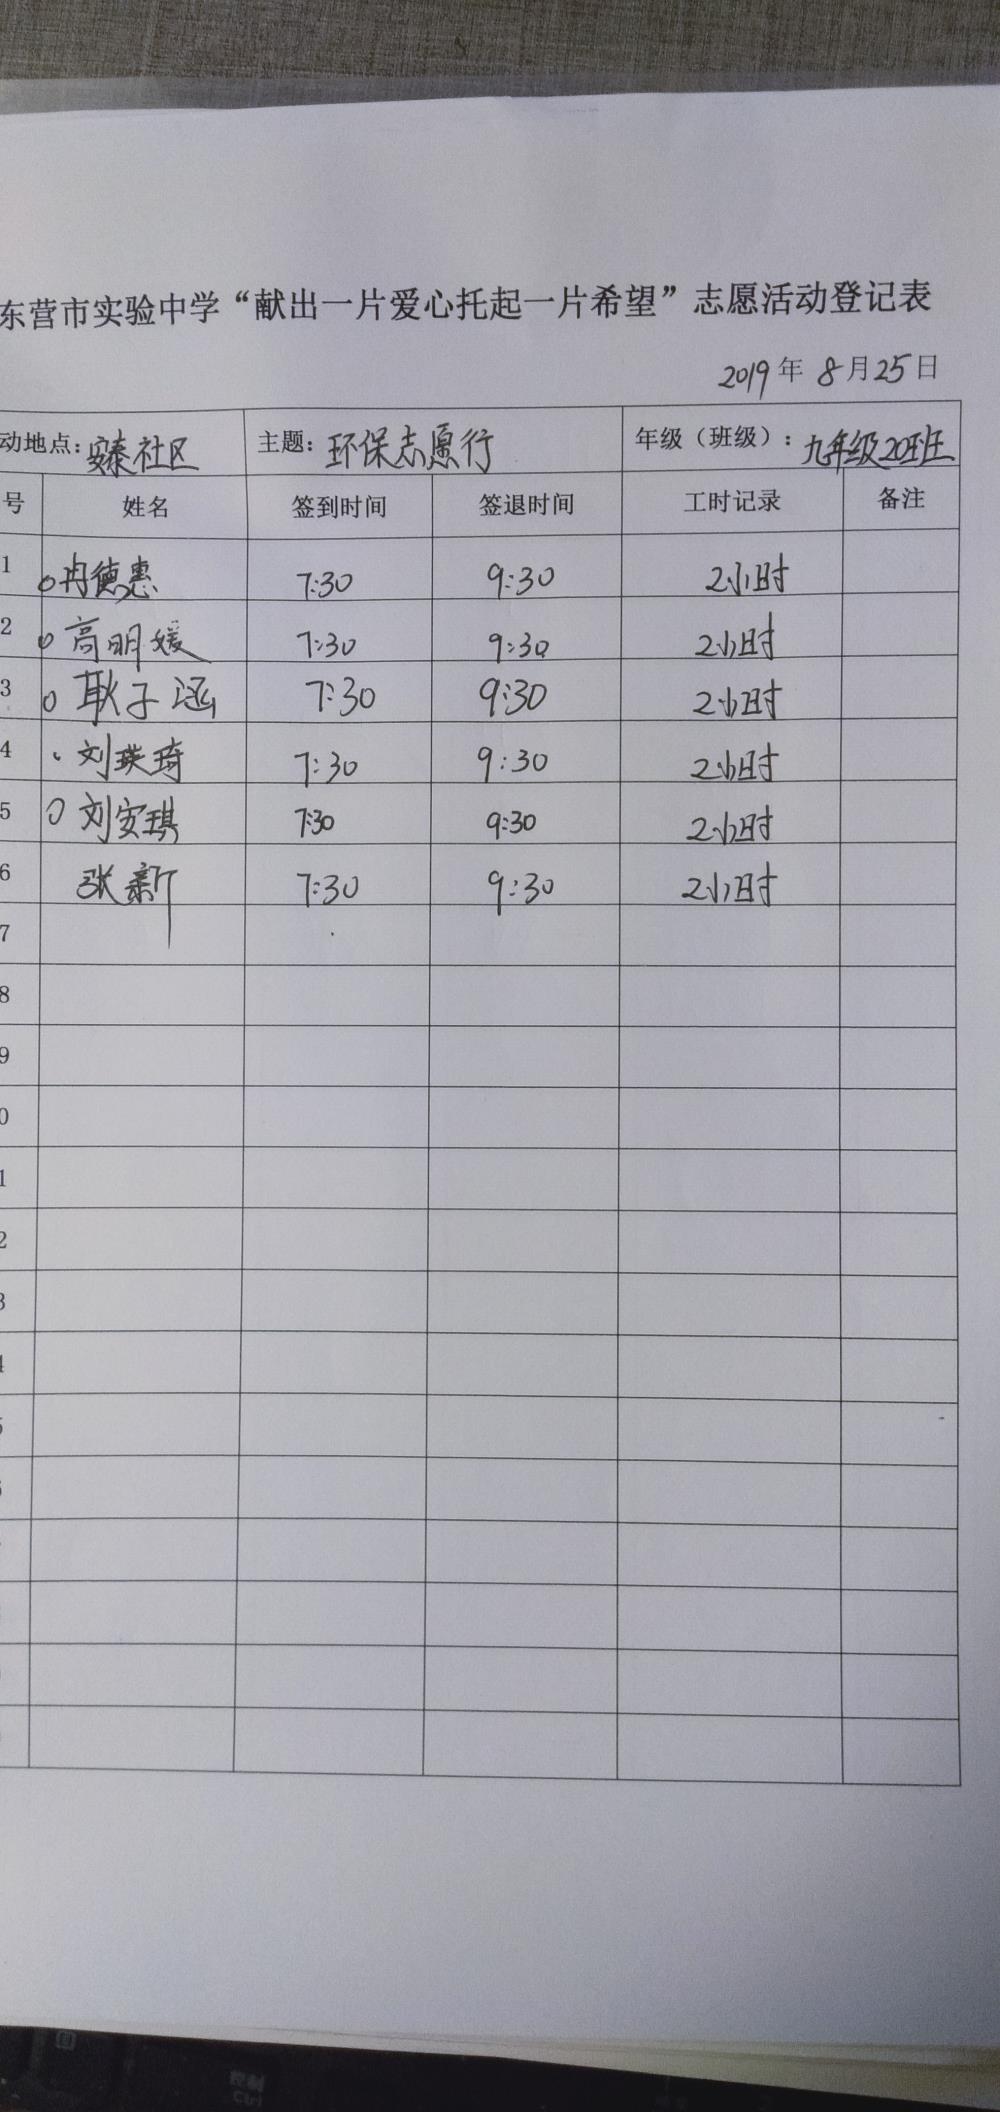 东营市实验中学“献出一片爱心托起一片希望”志愿活动登记表
2019年 8月25日
动地点：安泰社区 主题：环保志愿行 年级（班级）：九年级20班
号 姓名 签到时间 签退时间 工时记录 备注
1 冉德惠 7:30 9:30 2小时
2 高明媛 7:30 9:30 2小时
3 耿子涵 7:30 9:30 2小时
4 刘瑛琦 7:30 9:30 2小时
5 刘安琪 7:30 9:30 2小时
6 张新 7:30 9:30 2小时
7
8
9
0
1
2
3
4
5
控制
Ctrl